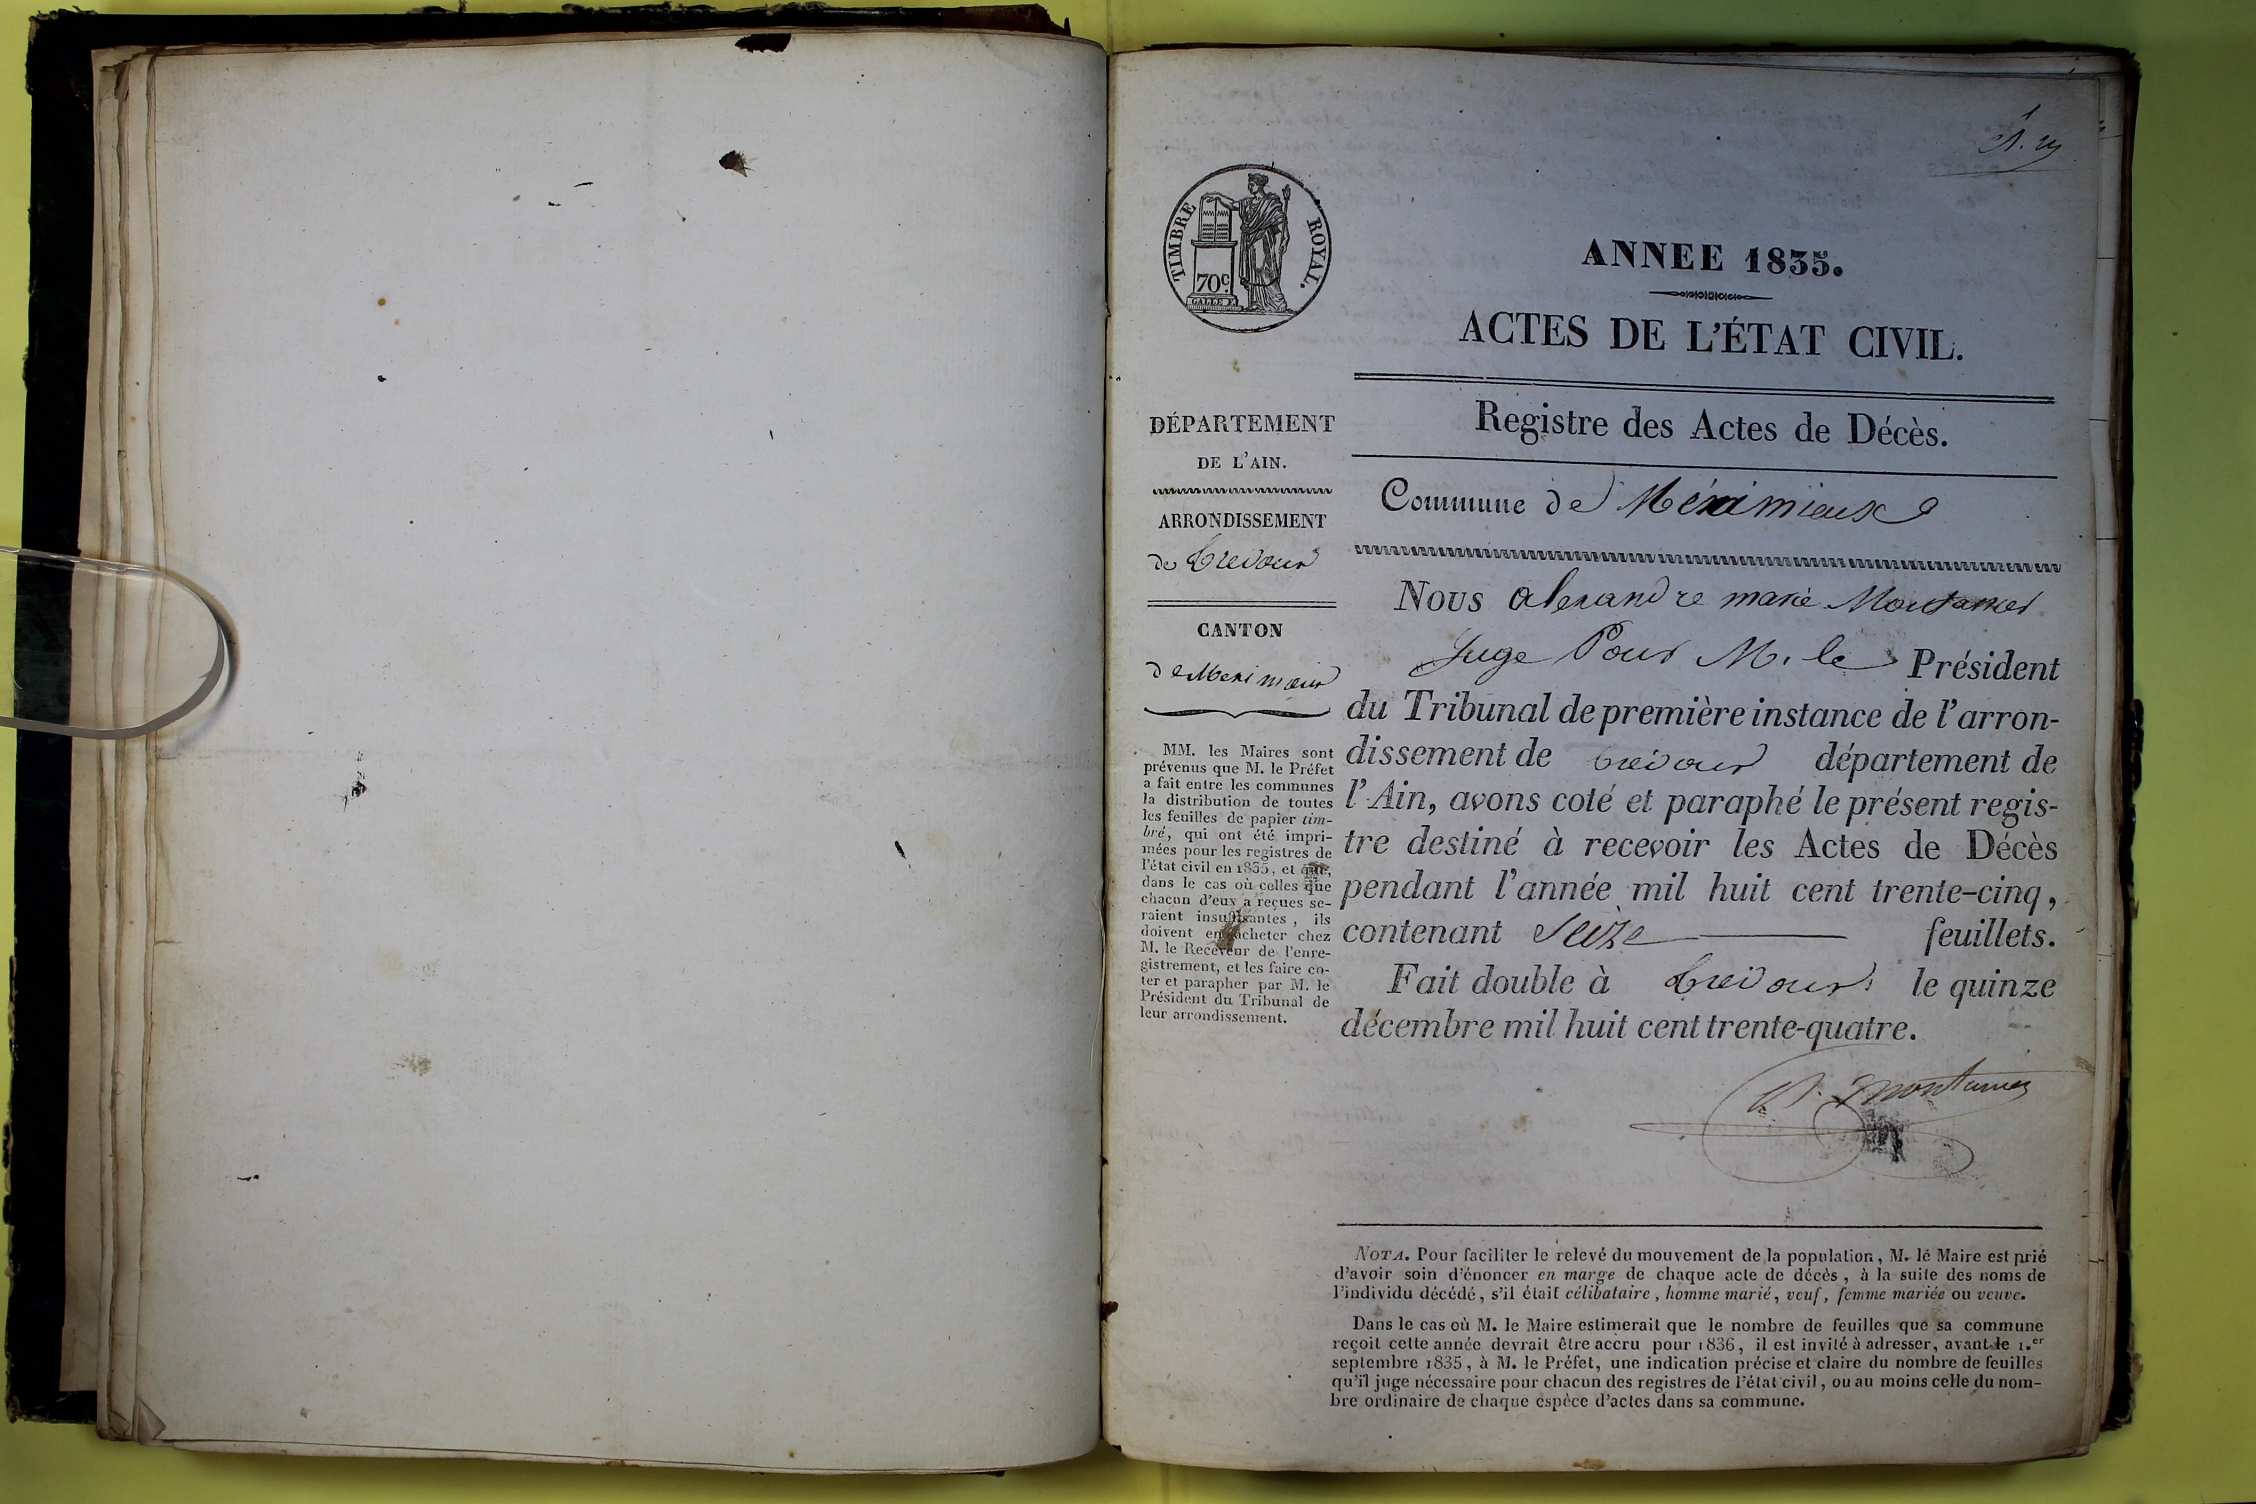 TIMBRE ROYAL.
70c.
ANNEE 1835.
ACTES DE L'ÉTAT CIVIL.
Registre des Actes de Décès.
Commune de Méximieux
DÉPARTEMENT
DE L'AIN.
ARRONDISSEMENT
de Trevoux
CANTON
de Meximieux
MM. les Maires sont
prévenus que M. le Préfet
a fait entre les communes
la distribution de toutes
les feuilles de papier tim-
bré, qui ont été impri-
mées pour les registres de
l'état civil en 1835, et que,
dans le cas où celles que
chacun d'eux a reçues se-
raient insuffisantes, ils
doivent en acheter chez
M. le Receveur de l'enre-
gistrement, et les faire co-
ter et parapher par M. le
Président du Tribunal de
leur arrondissement.
Nous alexandre marie Montanier
Juge Pour M. le Président
du Tribunal de première instance de l'arron-
dissement de trévoux département de
l'Ain, avons coté et paraphé le présent regis-
tre destiné à recevoir les Actes de Décès
pendant l'année mil huit cent trente-cinq,
contenant Seize feuillets.
Fait double à trevoux le quinze
décembre mil huit cent trente-quatre.
A. Montanier
NOTA. Pour faciliter le relevé du mouvement de la population, M. le Maire est prié
d'avoir soin d'énoncer en marge de chaque acte de décès, à la suite des noms de
l'individu décédé, s'il était célibataire, homme marié, veuf, femme mariée ou veuve.
Dans le cas où M. le Maire estimerait que le nombre de feuilles que sa commune
reçoit cette année devrait être accru pour 1836, il est invité à adresser, avant le 1.er
septembre 1835, à M. le Préfet, une indication précise et claire du nombre de feuilles
qu'il juge nécessaire pour chacun des registres de l'état civil, ou au moins celle du nom-
bre ordinaire de chaque espèce d'actes dans sa commune.